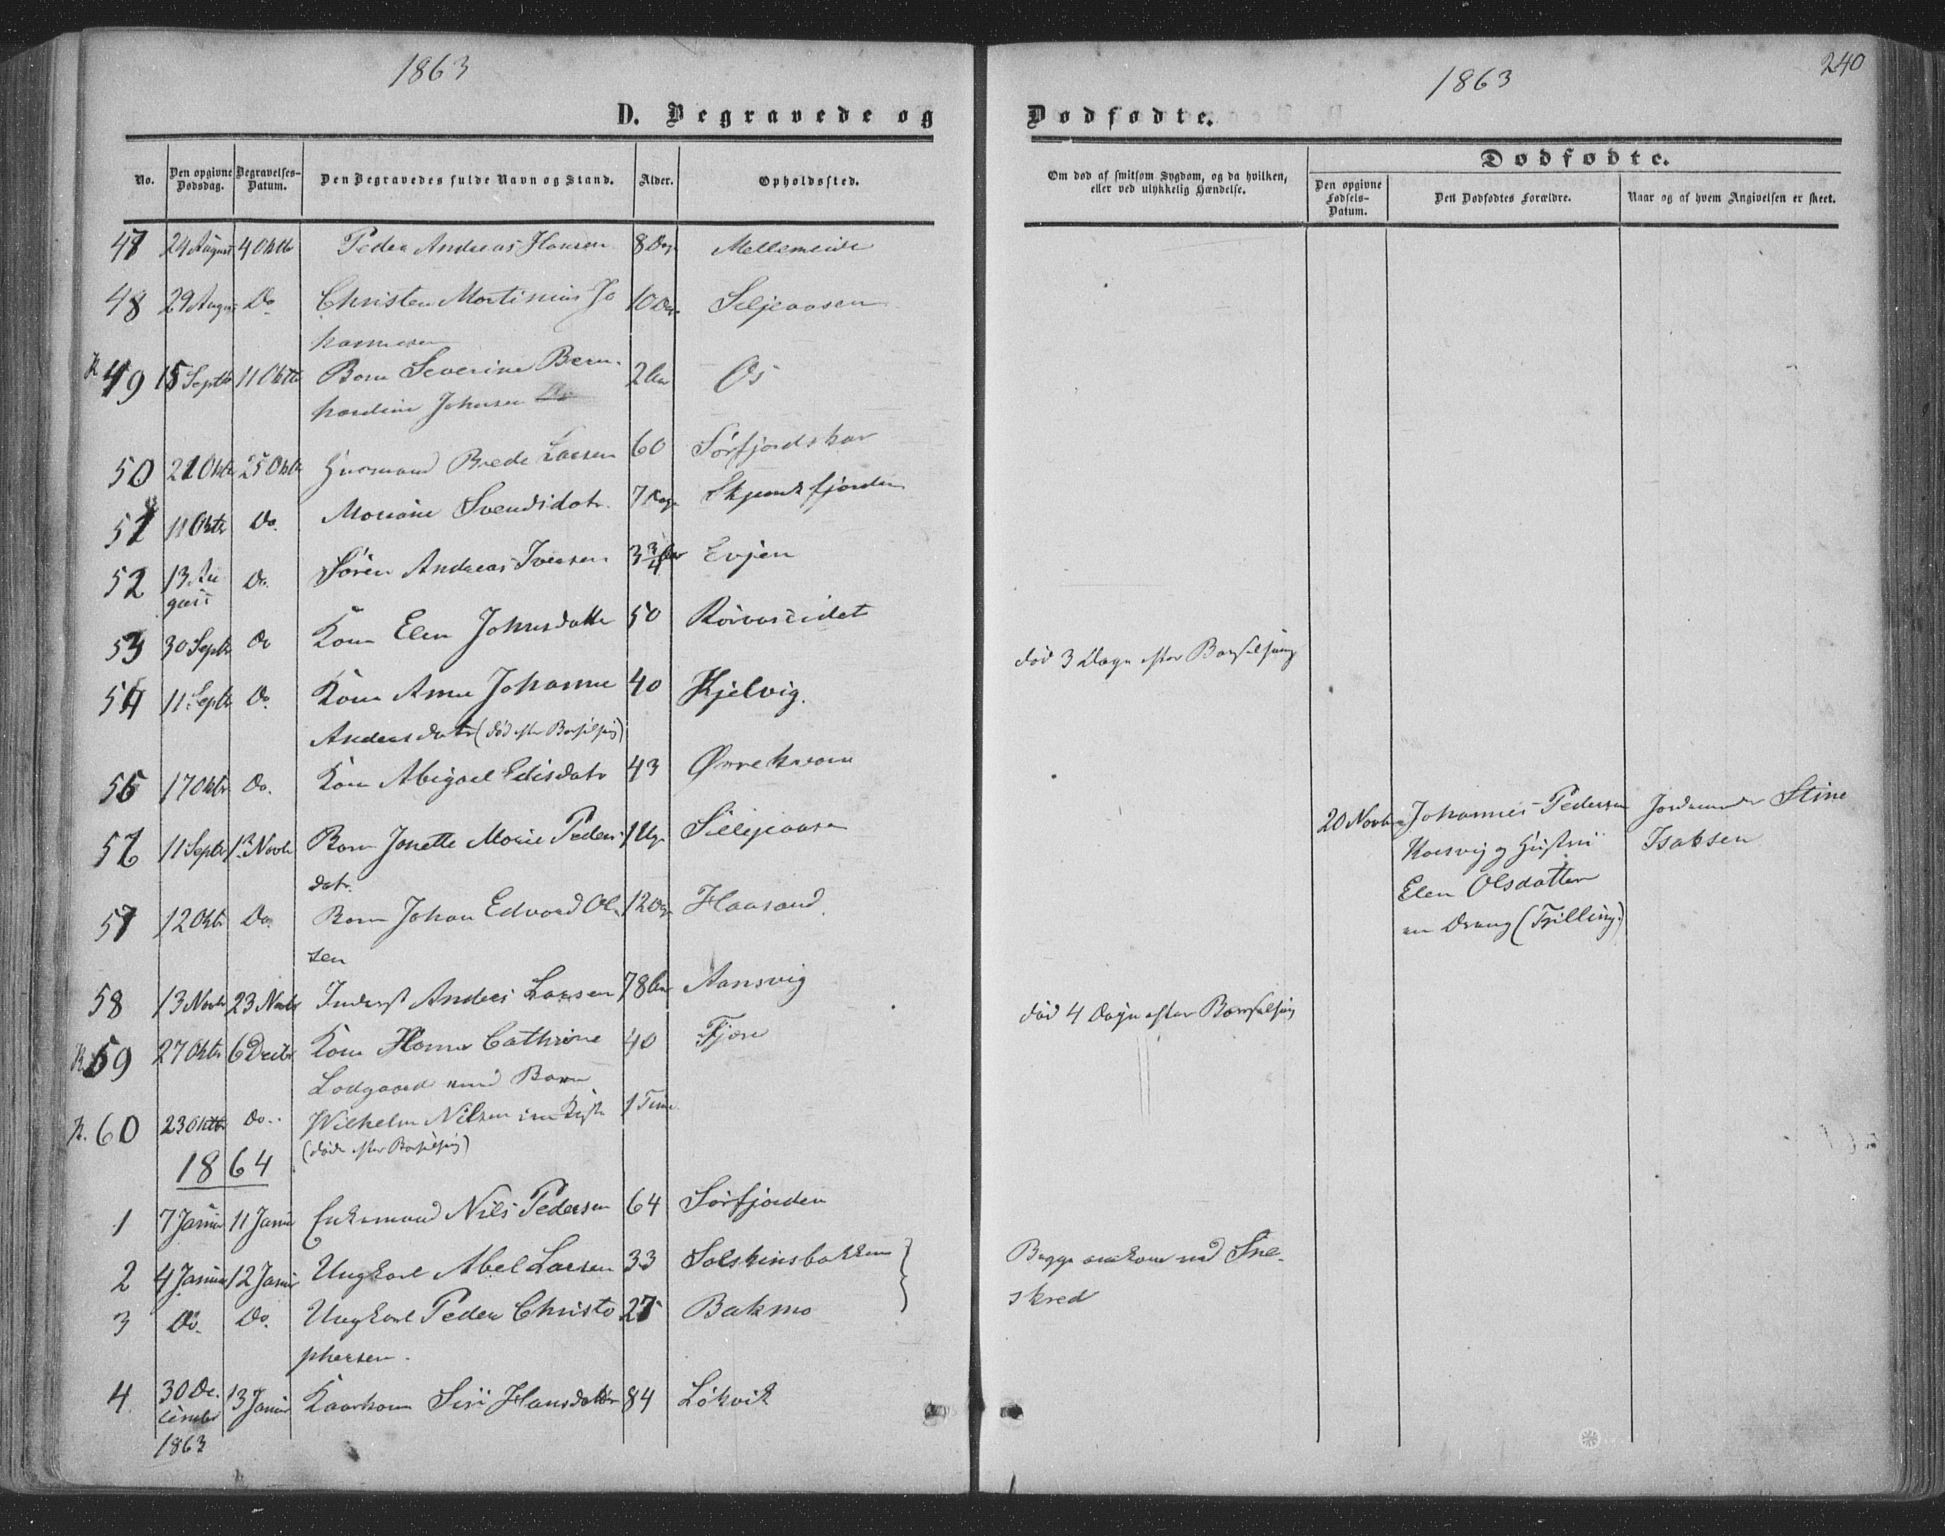 1863
D. Begravede og
No.
Den opgivne Dødsdag.
Begravelses-Datum.
Den Begravedes fulde Navn og Stand.
Alder.
Opholdssted.
47 24 August 4 Oktb Peder Andreas Hansen 8 Dag Mellemeide
48 29 Augus Do Christen Martinius Jo 10 Dag Seljeaasen
hannesen
K 49 15 Septb 11 Oktb Barn Severine Bern- 2 Aar Os
hardine Johnsen
50 21 Oktr 25 Oktb Huusmand Brede Larsen 60 Sørfjordskar
51 11 Oktr Do. Mariane Svendsdatr. 7 Dag
52 13 Au Do. Søren Andreas Iversen 3 3/4 Aar Evjen
gust
53 30 Septr Do Kone Elen Johnsdatte 50 Rørvaseidet
54 11 Septr Do. Kone Anne Johanne 40 Kjelvig.
Andersdatr (død efter Barselseng)
55 17 Oktr Do. Kone Abigael Edisdatr 43 Ørnekvam
56 11 Septr 13 Novb Barn Jonette Marie Peders 1 Ug. Silljeaasen
datr.
57 12 Oktr Do. Barn Johan Edvard Ol 12 Dag Haasand.
sen
58 13 Novbr 23 Novbr Inderst Anders Larsen 78 Aar Aansvig
K. 59 27 Oktr 6 Decbr Kone Hanna Cathrine 40 Fjære
Lodgaard med Barn
K. 60 23 Oktbr Do. Wilhelm Nilsen i en Kiste 1 Time
(døde efter Barselseng)
1864
1 7 Januar 11 Janu Enkemand Nils Pedersen 64 Sørfjorden
2 4 Januar 12 Janr Ungkarl Abel Larsen 33 Solskinsbakken
3 Do. Do. Ungkarl Peder Christo 27 Bakmo
phersen.
4 30 De- 13 Januar Kaarkone Siri Hansdatter 84 Løkvik
cember
1863
240
1863
Dødfødte.
Om død af smitsom Sygdom, og da hvilken,
eller ved ulykkelig Hændelse.
Dødfødte.
Den opgivne Fødsels-Datum.
Den Dødfødtes Forældre.
Naar og af hvem Angivelsen er skeet.
død 3 Dage efter Barselseng
20 Novbr Johannes Pedersen Jordemoder Stine
Korsvig og Hustru Isaksen
Elen Olsdatter
en Dreng (Tvilling)
død 4 Dage efter Barselseng
Begge omkom ved Sne-
skred